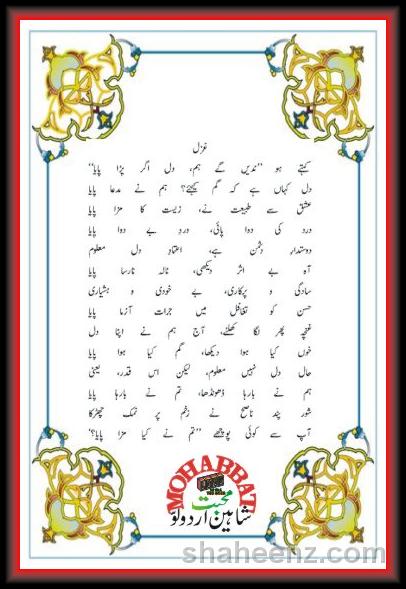 غزل
کہتے ہو ”ندیں گے ہم، دل اگر پڑا پایا“
دل کہاں ہے کہ گم کیجئے؟ ہم نے مدعا پایا
عشق سے طبیعت نے، زیست کا مزا پایا
درد کی دوا پائی، درد بے دوا پایا
دوستدار دشمن ہے، اعتماد دل معلوم
آہ بے اثر دیکھی، نالہ نارسا پایا
سادگی و پرکاری، بے خودی و ہشیاری
حسن کو تغافل میں جرات آزما پایا
غنچہ پھر لگا کھلنے، آج ہم نے اپنا دل
خوں کیا ہوا دیکھا، گم کیا ہوا پایا
حال دل نہیں معلوم، لیکن اس قدر، یعنی
ہم نے بارہا ڈھونڈھا، تم نے بارہا پایا
شور پند ناصح نے زخم پر نمک چھڑکا
آپ سے کوئی پوچھے ”تم نے کیا مزا پایا؟“
MOHABBAT
محبت
شاہین اردو لَو
shaheenz.com